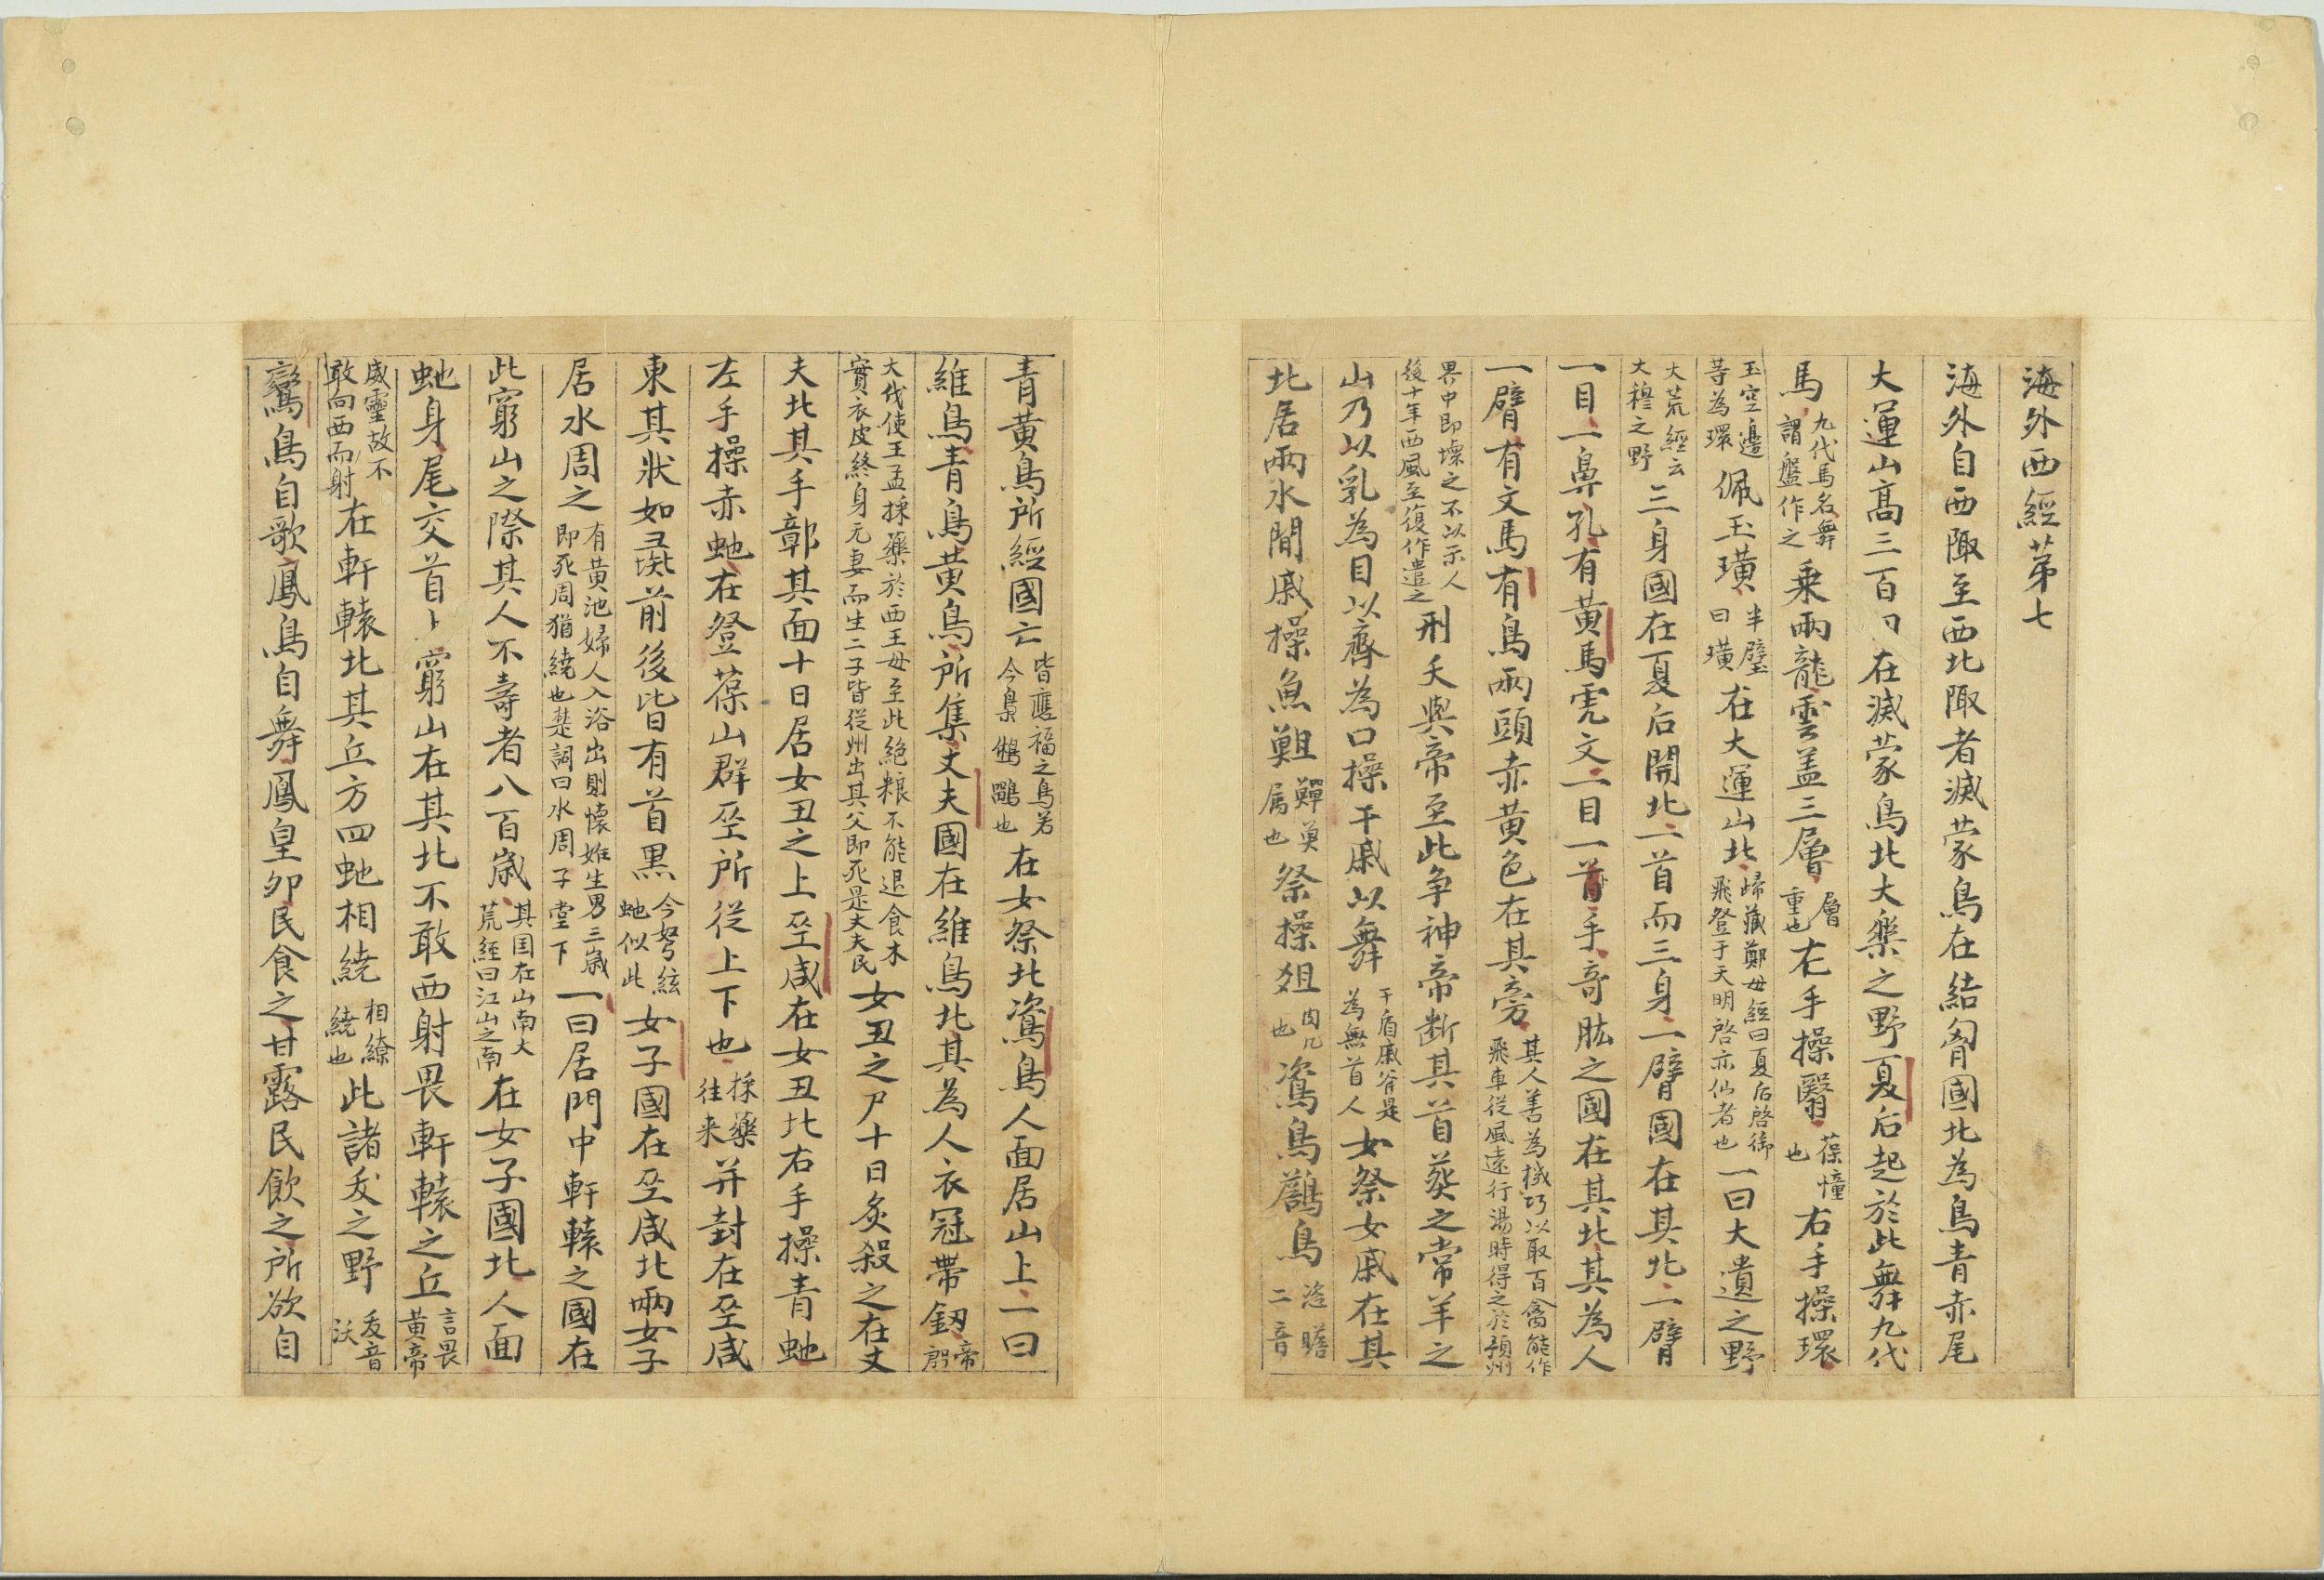 海外西經第七
海外自西陬至西北陬者滅蒙鳥在結匈國北為鳥青赤尾
大運山高三百仞在滅蒙鳥北大樂之野夏后起於此舞九代
馬九代馬名舞謂盤作之乗兩龍雲盖三層層重也左手操翳葆幢也右手操環
玉空邊等為環佩玉璜半璧曰璜在大運山北歸藏鄭母經曰夏后啓御飛登于天明啓亦仙者也一曰大遺之野
大荒經云大穆之野三身國在夏后開北一首而三身一臂國在其北一臂
一目一鼻孔有黃馬虎文一目一首手奇肱之國在其北其為人
一臂有文馬有鳥兩頭赤黃色在其旁其人善為機巧以取百禽能作飛車從風遠行湯時得之於預州
界中即壞之不以示人後十年西風至復作遣之刑夭與帝至此争神帝断其首葬之常羊之
山乃以乳為目以齊為口操干戚以舞干盾戚斧是為無首人女祭女戚在其
北居兩水間戚操魚䱉鱓魚属也祭操俎肉几也鴍鳥鶬鳥䛢瞻二音
青黃鳥所經國亡皆應福之鳥若今梟鵂鶹也在女祭北鴍鳥人面居山上一曰
維鳥青鳥黃鳥所集丈夫國在維鳥北其為人衣冠帶劔帝殷
大代使王孟採藥於西王母至此絶粮不能退食木實衣皮終身无妻而生二子皆從州出其父即死是丈夫民女丑之尸十日炙殺之在丈
夫北其手鄣其面十日居女丑之上巫咸在女丑北右手操青虵
左手操赤虵在登葆山群巫所從上下也採藥往来并封在巫咸
東其狀如彘前後皆有首黑今弩絃虵似此女子國在巫咸北兩女子
居水周之有黃池婦人入浴出則懷姙生男三歲即死周猶繞也楚詞曰水周于堂下一曰居門中軒轅之國在
此窮山之際其人不壽者八百歲其国在山南大荒經曰江山之南在女子國北人面
虵身尾交首上窮山在其北不敢西射畏軒轅之丘言畏黃帝
威靈故不敢向西而射在軒轅北其丘方四虵相繞相繚繞也此諸夭之野夭音沃
鸞鳥自歌鳳鳥自舞鳳皇卵民食之甘露民飲之所欲自